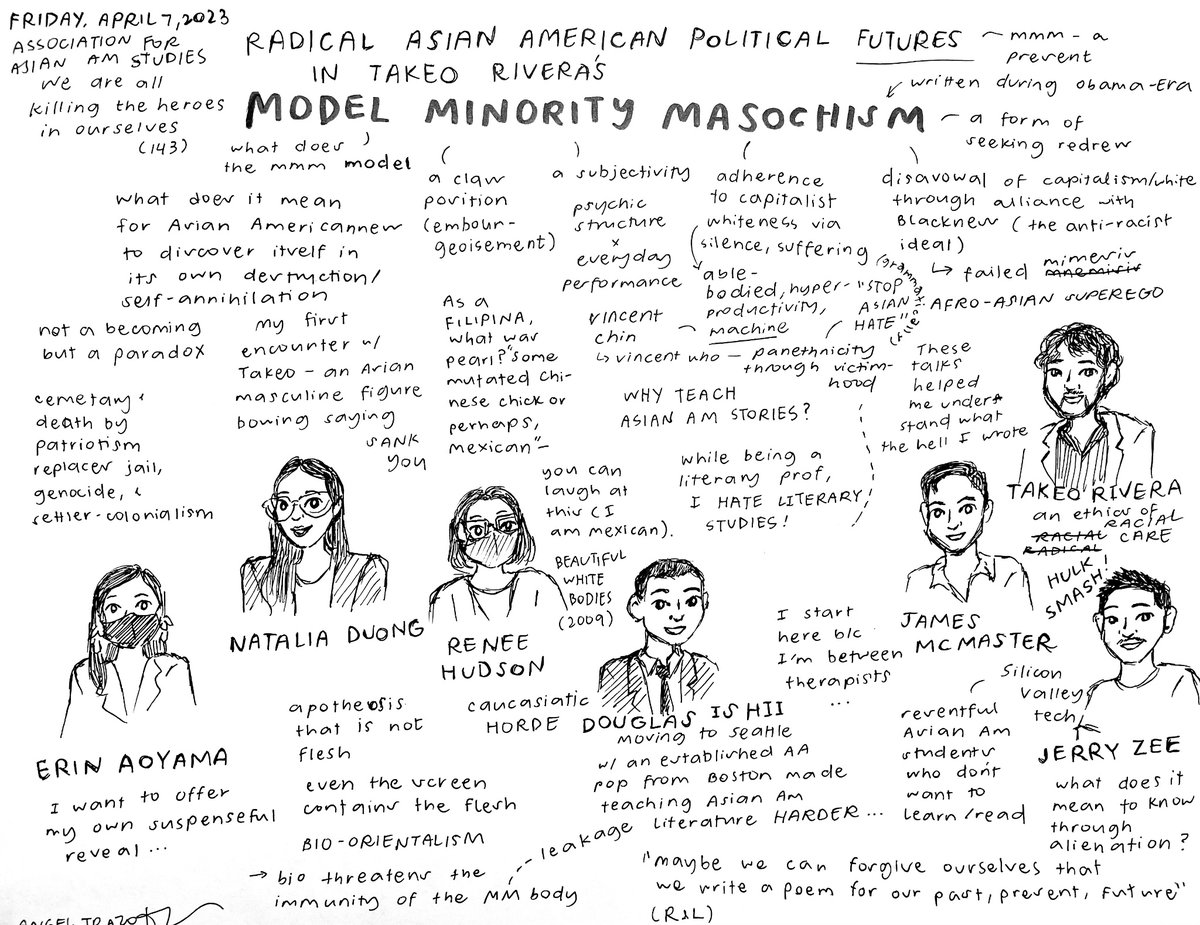 FRIDAY, APRIL 7, 2023
ASSOCIATION FOR
ASIAN AM STUDIES
we are all
killing the heroes
in ourselves
(143)
RADICAL ASIAN AMERICAN POLITICAL FUTURES
IN TAKEO RIVERA'S
MODEL MINORITY MASOCHISM
mmm - a
present
written during Obama-Era
a form of
seeking redress
what does
the mmm model
a class
position
(embour-
geoisement)
a subjectivity
psychic
structure
x
everyday
performance
adherence
to capitalist
whiteness via
silence, suffering
able-
bodied, hyper-
productivity,
machine
disavowal of capitalism/white
through alliance with
Blackness (the anti-racist
ideal)
failed mimesis
mnemisis
AFRO-ASIAN SUPEREGO
what does it mean
for Asian Americanness
to discover itself in
its own destruction/
self-annihilation
not a becoming
but a paradox
cemetary &
death by
patriotism
replaces jail,
genocide, &
settler-colonialism
my first
encounter w/
Takeo - an Asian
masculine figure
bowing saying
SANK
YOU
As a
FILIPINA,
what was
pearl? "some
mutated chi-
nese chick or
perhaps,
mexican"-
you can
laugh at
this (I
am mexican).
vincent
chin
vincent who - panethnicity
through victim-
hood
"STOP
ASIAN
HATE"
WHY TEACH
ASIAN AM STORIES?
while being a
literary prof,
I HATE LITERARY
STUDIES!
These
talks
helped
me under
stand what
the hell I wrote
TAKEO RIVERA
an ethics of
RACIAL
RACIAL CARE
RADICAL
HULK
SMASH!
NATALIA DUONG
RENEE
HUDSON
BEAUTIFUL
WHITE
BODIES
(2009)
JAMES
MCMASTER
I start
here b/c
I'm between
therapists
...
Silicon
Valley
tech
resentful
Asian Am
students
who don't
want to
learn/read
JERRY ZEE
what does it
mean to know
through
alienation?
ERIN AOYAMA
I want to offer
my own suspenseful
reveal...
apotheosis
that is not
flesh
even the screen
contains the flesh
BIO-ORIENTALISM
bio threatens the
immunity of the MM body
leakage
caucasiatic
HORDE
DOUGLAS ISHII
moving to seattle
w/ an established AA
pop from Boston made
teaching Asian Am
literature HARDER...
"maybe we can forgive ourselves that
we write a poem for our past, present, future"
(R&L)